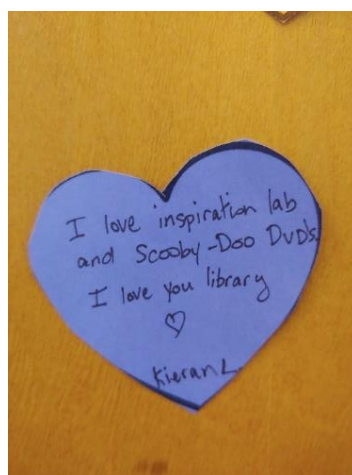 I love inspiration lab
and Scooby-Doo DVD's
I love you library
♡
Kieran L.